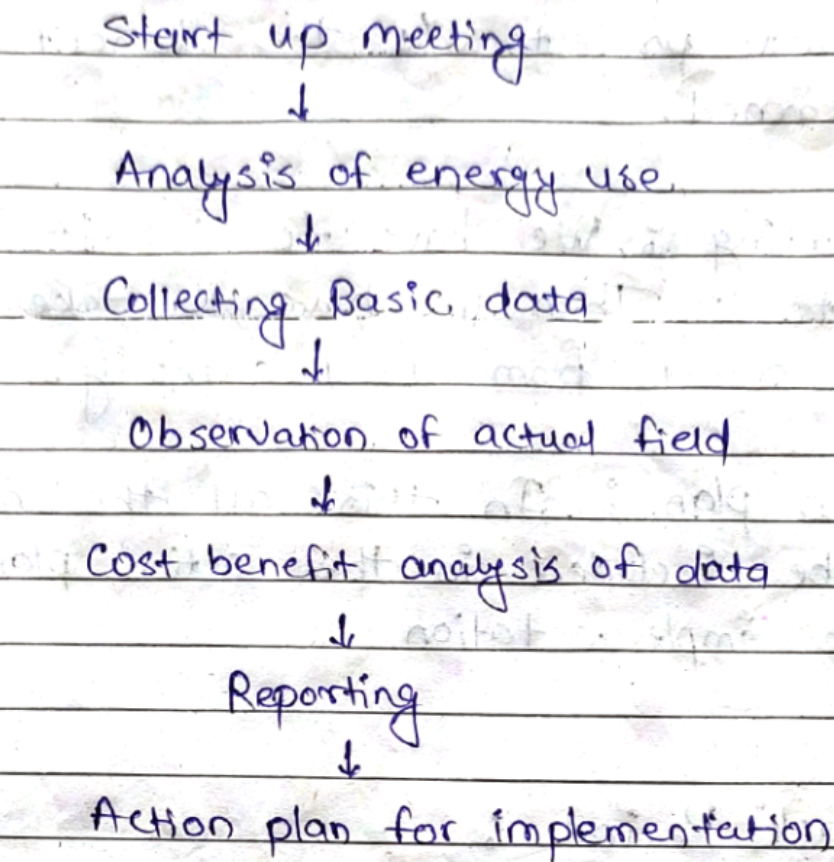 Start up meeting
↓
Analysis of energy use
↓
Collecting Basic data
↓
Observation of actual field
↓
Cost benefit analysis of data
↓
Reporting
↓
Action plan for implementation